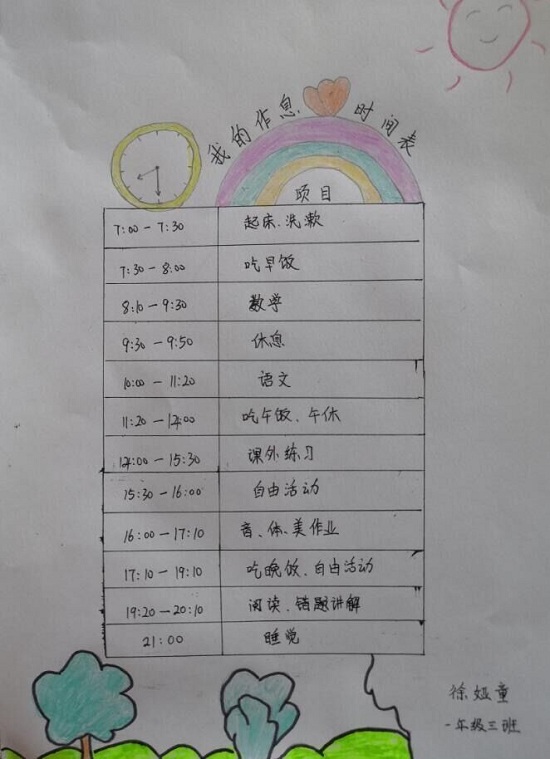 我的作息时间表
项目
7:00 - 7:30 起床、洗漱
7:30 - 8:00 吃早饭
8:10 - 9:30 数学
9:30 - 9:50 休息
10:00 - 11:20 语文
11:20 - 14:00 吃午饭、午休
14:00 - 15:30 课外练习
15:30 - 16:00 自由活动
16:00 - 17:10 音、体、美作业
17:10 - 19:10 吃晚饭、自由活动
19:20 - 20:10 阅读、错题讲解
21:00 睡觉
徐娅童
一年级三班